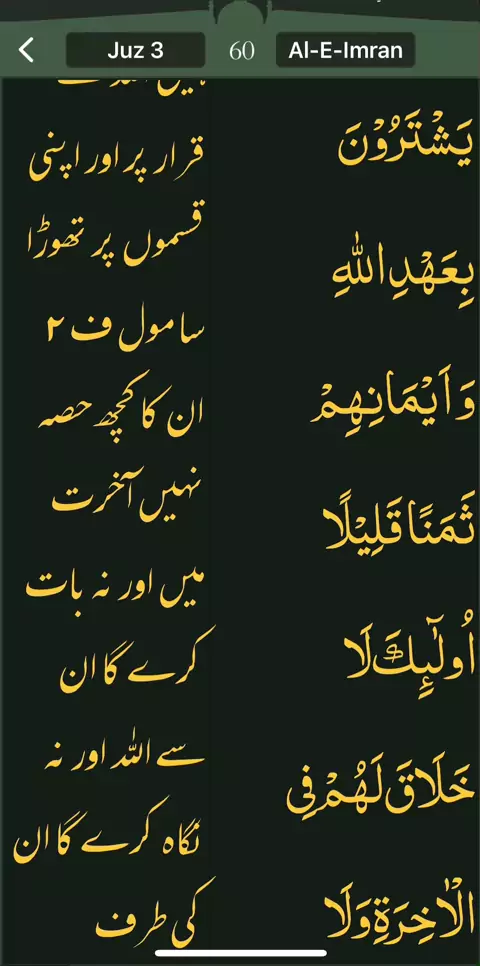 Juz 3
60
Al-E-Imran
يَشْتَرُوْنَ
بِعَهْدِ اللّٰهِ
وَ اَيْمَانِهِمْ
ثَمَنًا قَلِيْلًا
اُولٰٓئِكَ لَا
خَلَاقَ لَهُمْ فِي
الْاٰخِرَةِ وَلَا
قرار پر اور اپنی
قسموں پر تھوڑا
سا مول ف ۲
ان کا کچھ حصہ
نہیں آخرت
میں اور نہ بات
کرے گا ان
سے اللہ اور نہ
نگاہ کرے گا ان
کی طرف